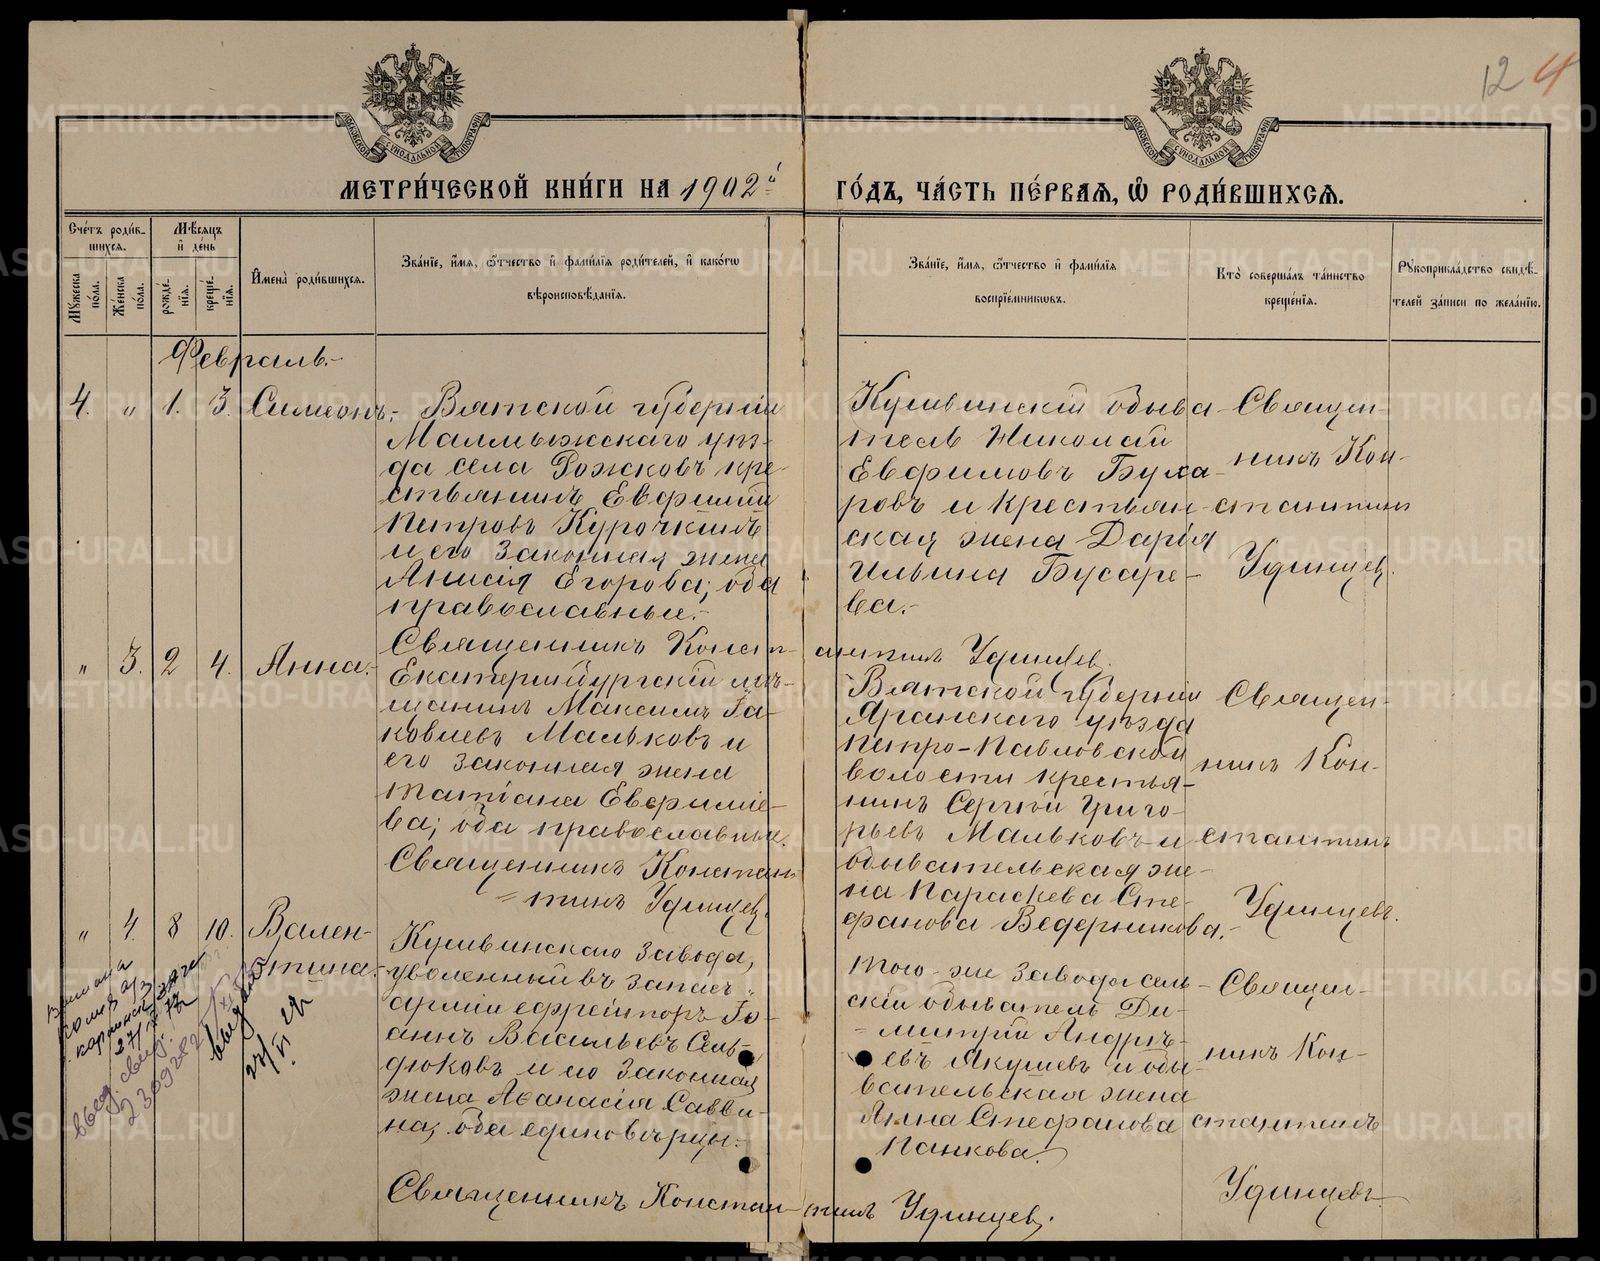 12 4
МЕТРИ́ЧЕСКОЙ КНИ́ГИ НА 1902й
ГО́ДЪ, ЧА́СТЬ ПЕ́РВАѦ, Ѡ҆ РОДИ́ВШИХСѦ.
Сче́тъ роди́в-
шихсѧ.
Мꙋ́жеска по́ла.
Же́нска по́ла.
Мѣ́сѧцъ
и҆ де́нь
рожде́-
нїѧ.
креще́-
нїѧ.
И҆мена̀ роди́вшихсѧ.
Зва́нїе, и҆́мѧ, ѻ҆́тчество и҆ фами́лїѧ роди́телей, и҆ како́гѡ
вѣроисповѣ́данїѧ.
Зва́нїе, и҆́мѧ, ѻ҆́тчество и҆ фами́лїѧ
воспрїе́мникѡвъ.
Кто̀ соверша́лъ та́инство
креще́нїѧ.
Рꙋкоприкла́дство свидѣ́-
телей за́писи по жела́нїю.
Февраль.-
4. " 1. 3. Симеонъ.-
Вятской губернiи
Малмыжскаго уѣз-
да села Рожковъ кре-
стьянинъ Евфимiй
Петровъ Курочкинъ
и его законная жена
Анисiя Егорова; оба
православные.-
Кушвинскiй обыва-
тель Николай
Евфимовъ Буха-
ровъ и крестьян-
ская жена Дарiя
Ильина Бусаре-
ва.-
Священ-
никъ Кон-
стантинъ
Удинцев.
Священникъ Константинъ Удинцев.
" 3. 2 4. Анна.-
Екатеринбургскiй мѣ-
щанинъ Максимъ Iа-
ковлевъ Мальковъ и
его законная жена
Татiана Евфимiе-
ва; оба православные.
Священникъ Констан-
=тинъ Удинцев.
Вятской губернiи
Яранскаго уѣзда
Петро-Павловской
волости крестья-
нинъ Сергiй Григо-
рьевъ Мальковъ и
обывательская же-
на Параскева Сте-
фанова Ведерникова.-
Священ-
никъ Кон-
стантинъ
Удинцевъ.
" 4. 8 10. Вален-
тина.-
Кушвинскаго завода,
уволенный въ запасъ
армiи ефрейторъ Iо-
аннъ Васильевъ Сель-
дюковъ и его законная
жена Аѳанасiя Савви-
на, оба единовѣрцы.-
Того-же завода сель-
скiй обыватель Ди-
=митрiй Андрѣ-
евъ Якушевъ и обы-
вательская жена
Анна Стефанова
Панкова.
Священ-
никъ Кон-
стантинъ
Удинцевъ
Священникъ Константинъ Удинцев.